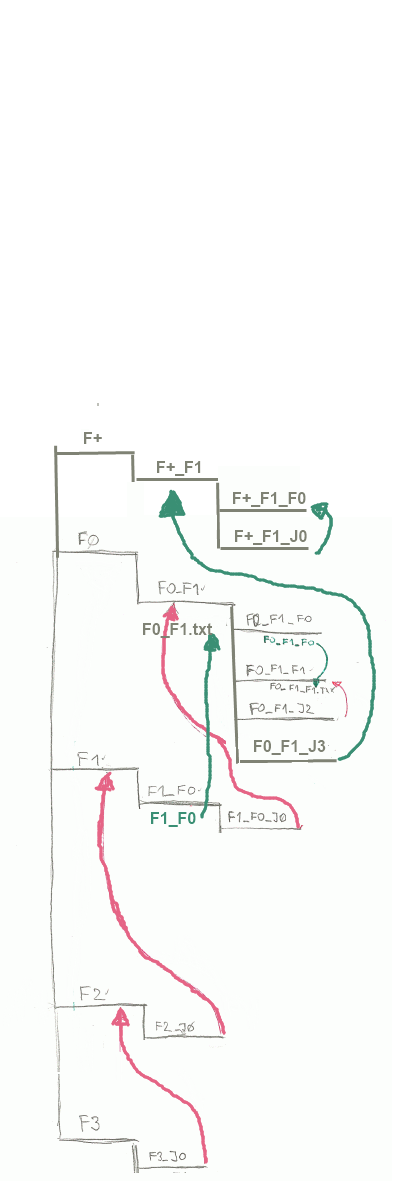 F+
F+_F1
F+_F1_F0
F+_F1_J0
F0
F0_F1
F0_F1.txt
F0_F1_F0
F0_F1_F0
F0_F1_F1
F0_F1_F1.txt
F0_F1_J2
F0_F1_J3
F1
F1_F0
F1_F0
F1_F0_J0
F2
F2_J0
F3
F3_J0